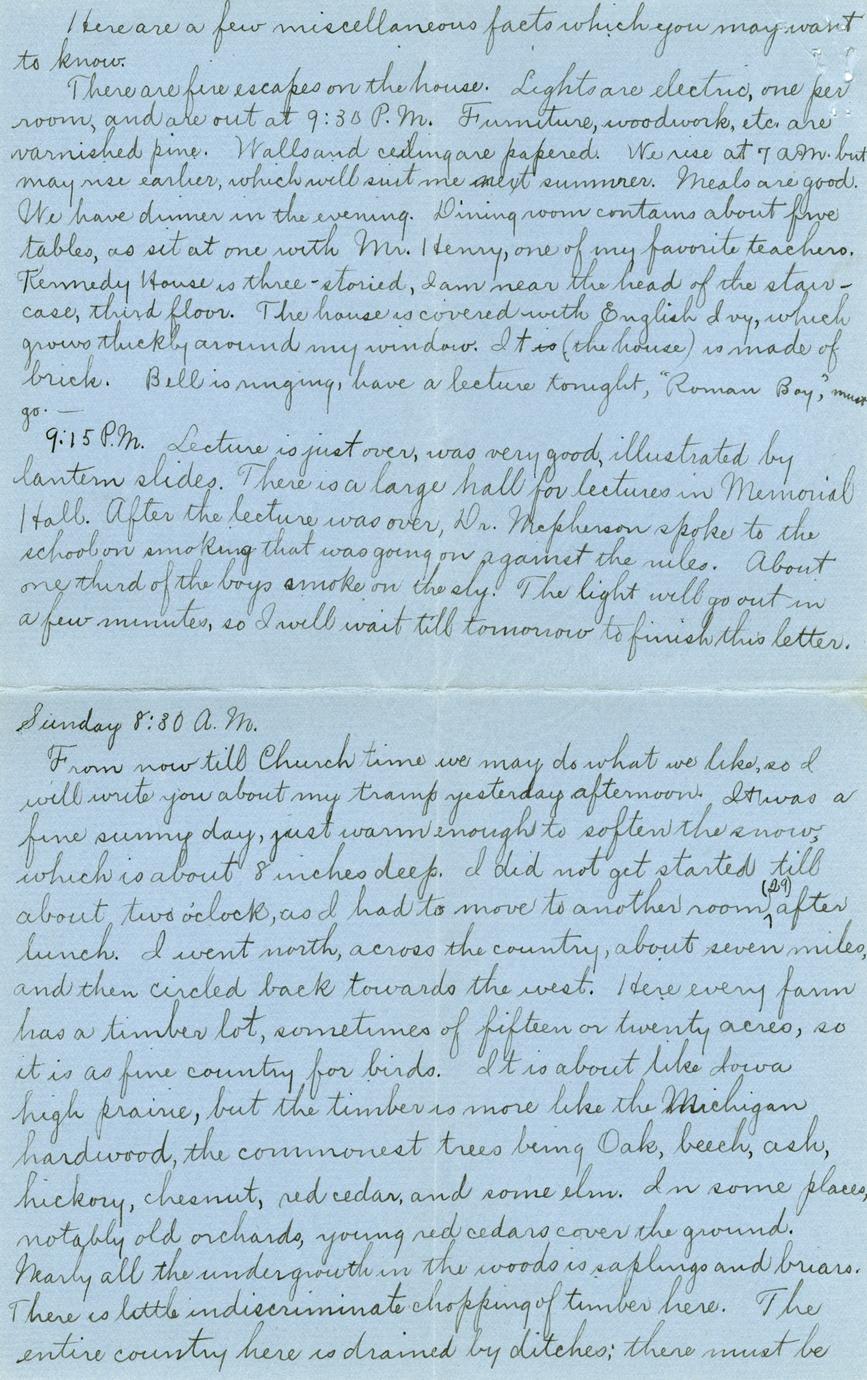 Here are a few miscellaneous facts which you may want
to know.
There are fire escapes on the house. Lights are electric, one per
room, and are out at 9:30 P.M. Furniture, woodwork, etc. are
varnished pine. Walls and ceiling are papered. We rise at 7 A.M. but
may rise earlier, which will suit me next summer. Meals are good.
We have dinner in the evening. Dining room contains about five
tables, as sit at one with Mr. Henry, one of my favorite teachers.
Kennedy House is three-storied, I am near the head of the stair-
case, third floor. The house is covered with English Ivy, which
grows thickly around my window. It is (the house) is made of
brick. Bell is ringing, have a lecture tonight, "Roman Boy," must
go. —
9:15 P.M. Lecture is just over, was very good, illustrated by
lantern slides. There is a large hall for lectures in Memorial
Hall. After the lecture was over, Dr. Mcpherson spoke to the
school on smoking that was going on against the rules. About
one third of the boys smoke on the sly. The light will go out in
a few minutes, so I will wait till tomorrow to finish this letter.
Sunday 8:30 A.M.
From now till Church time we may do what we like, so I
will write you about my tramp yesterday afternoon. It was a
fine sunny day, just warm enough to soften the snow,
which is about 8 inches deep. I did not get started till
about two o'clock, as I had to move to another room, (29) after
lunch. I went north, across the country, about seven miles,
and then circled back towards the west. Here every farm
has a timber lot, sometimes of fifteen or twenty acres, so
it is as fine country for birds. It is about like Iowa
high prairie, but the timber is more like the Michigan
hardwood, the commonest trees being Oak, beech, ash,
hickory, chesnut, red cedar, and some elm. In some places,
notably old orchards, young red cedars cover the ground.
Nearly all the undergrowth in the woods is saplings and briars.
There is little indiscriminate chopping of timber here. The
entire country here is drained by ditches; there must be